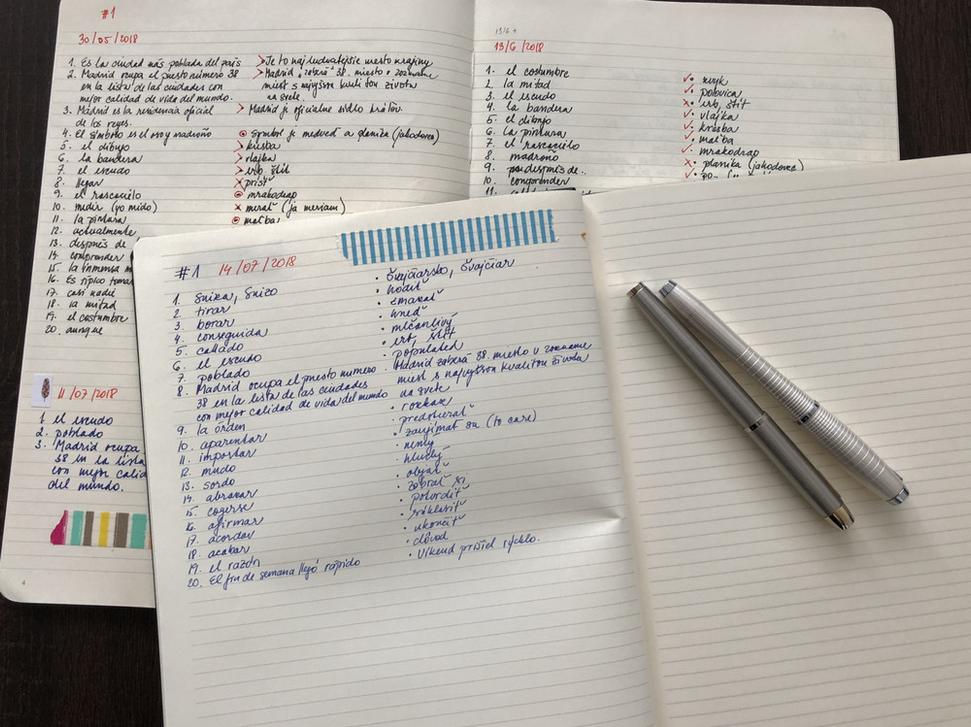 #1
30/05/2018
1. Es la ciudad más poblada del país
2. Madrid ocupa el puesto número 38
en la lista de las ciudades con
mejor calidad de vida del mundo.
3. Madrid es la residencia oficial
de los reyes.
4. El símbolo es el oso y madroño
5. el dibujo
6. la bandera
7. el escudo
8. llegar
9. el rascacielo
10. medir (yo mido)
11. la pintura
12. actualmente
13. después de
14. comprender
15. la inmensa m
16. Es típico tomar
17. casi nadie
18. la mitad
19. el costumbre
20. aunque
Je to najľudnatejšie miesto krajiny
Madrid zaberá 38. miesto v zozname
miest s najvyššou kvalitou života
na svete.
Madrid je oficiálne sídlo kráľov.
Symbol je medveď a planika (jahodovca)
kresba
vlajka
erb, štít
prísť
mrakodrap
merať (ja meriam)
maľba
11/07/2018
1. el escudo
2. poblado
3. Madrid ocupa
38 en la lista
con mejor calid
del mundo.
13/6
13/6/2018
1. el costumbre
2. la mitad
3. el escudo
4. la bandera
5. el dibujo
6. la pintura
7. el rascacielo
8. madroño
9. después de..
10. comprender
11.
zvyk
polovica
erb, štít
vlajka
kresba
maľba
mrakodrap
planika (jahodovca)
po
#1 14/07/2018
1. Suiza, Suizo
2. tirar
3. borrar
4. conseguida
5. callado
6. el escudo
7. poblado
8. Madrid ocupa el puesto número
38 en la lista de las ciudades
con mejor calidad de vida del mundo
9. la orden
10. aparentar
11. importar
12. mudo
13. sordo
14. abrazar
15. cogerse
16. afirmar
17. acordar
18. acabar
19. el razón
20. El fin de semana llegó rápido
• Švajčiarsko, Švajčiar
• hodiť
• zmazať
• hneď
• mlčanlivý
• erb, štít
• populated
• Madrid zaberá 38. miesto v zozname
miest s najvyššou kvalitou života
na svete
• rozkaz
• predstierať
• zaujímať sa (to care)
• nemý
• hluchý
• objať
• zobrať si
• potvrdiť
• súhlasiť
• ukončiť
• dôvod
• Víkend prišiel rýchlo.